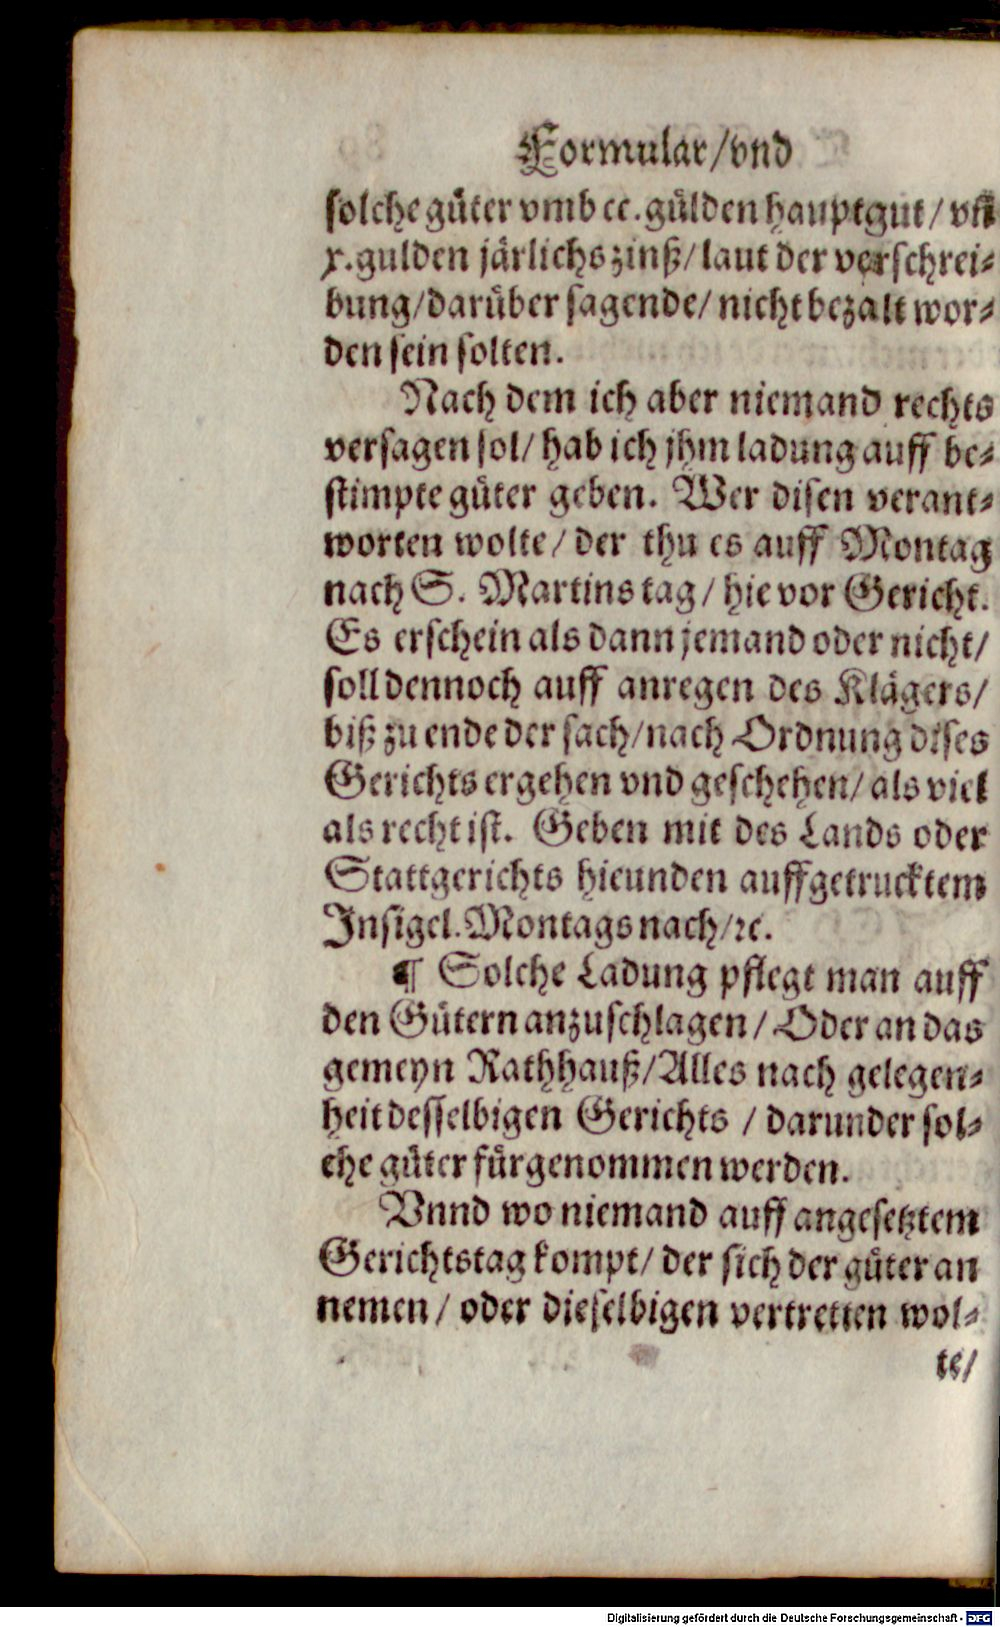 Formular/vnd
solche güter vmb cc. gülden hauptgut/ vñ
x. gulden järlichs zinß/ laut der verschrei-
bung/ darüber sagende/ nicht bezalt wor-
den sein solten.
Nach dem ich aber niemand rechts
versagen sol/ hab ich jhm ladung auff be-
stimpte güter geben. Wer disen verant-
worten wolte/ der thu es auff Montag
nach S. Martins tag/ hie vor Gericht.
Es erschein als dann jemand oder nicht/
soll dennoch auff anregen des Klägers/
biß zu ende der sach/ nach Ordnung dises
Gerichts ergehen vnd geschehen/ als viel
als recht ist. Geben mit des Lands oder
Stattgerichts hieunden auffgetrucktem
Insigel. Montags nach/ ꝛc.
¶ Solche Ladung pflegt man auff
den Gütern anzuschlagen/ Oder an das
gemeyn Rathhauß/ Alles nach gelegen-
heit desselbigen Gerichts / darunder sol-
che güter fürgenommen werden.
Vnnd wo niemand auff angesetztem
Gerichtstag kompt/ der sich der güter an
nemen/ oder dieselbigen vertretten wol-
te/
Digitalisierung gefördert durch die Deutsche Forschungsgemeinschaft - DFG